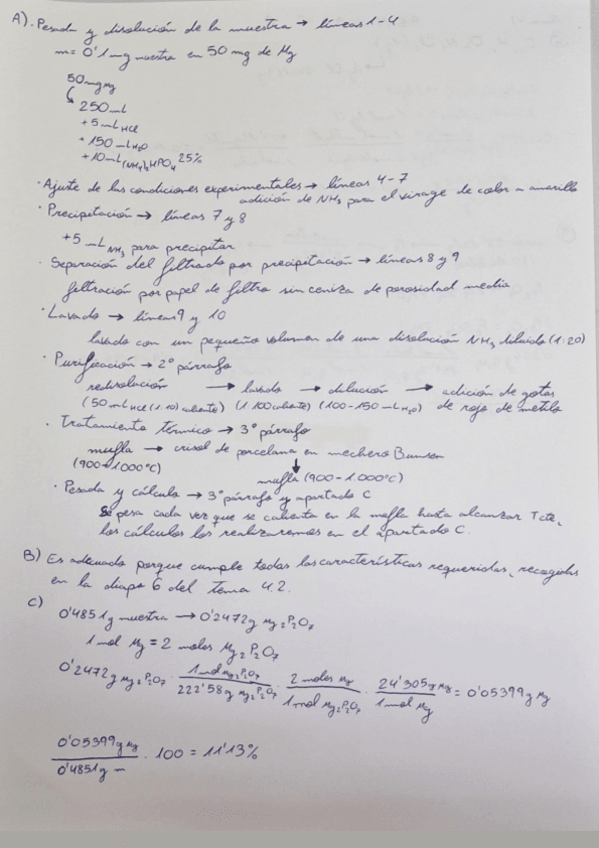 A). Pesada y disolución de la muestra → líneas 1-4
m = 0'1 mg muestra en 50 mg de Mg
50 mg Mg
↳ 250 mL
+ 5 mL HCl
+ 150 mL H2O
+ 10 mL (NH4)2HPO4 25%
· Ajuste de las condiciones experimentales → líneas 4-7
adición de NH3 para el virage de color a amarillo
· Precipitación → líneas 7 y 8
+5 mL NH3 para precipitar
· Separación del filtrado por precipitación → líneas 8 y 9
filtración por papel de filtro sin ceniza de porosidad media
· Lavado → líneas 9 y 10
lavado con un pequeño volumen de una disolución NH3 diluido (1:20)
· Purificación → 2º párrafo
redisolución → lavado → dilución → adición de gotas
(50 mL HCl (1:10) caliente) (1:100 caliente) (100-150 mL H2O) de rojo de metilo
· Tratamiento térmico → 3º párrafo
mufla → crisol de porcelana en mechero Bunsen
(900-1000ºC) ↓
mufla (900-1.000ºC)
· Pesada y cálculo → 3º párrafo y apartado C
Se pesa cada vez que se calienta en la mufla hasta alcanzar Tcte,
los cálculos los realizaremos en el apartado C.
B) Es adecuado porque cumple todas las características requeridas, recogidas
en la diapo 6 del tema 4.2.
C)
0'4851 g muestra → 0'2472 g Mg2P2O7
1 mol Mg = 2 moles Mg2P2O7
0'2472 g Mg2P2O7 · 1 mol Mg2P2O7 / 222'58 g Mg2P2O7 · 2 moles Mg / 1 mol Mg2P2O7 · 24'305 g Mg / 1 mol Mg = 0'05399 g Mg
0'05399 g Mg / 0'4851 g m · 100 = 11'13%